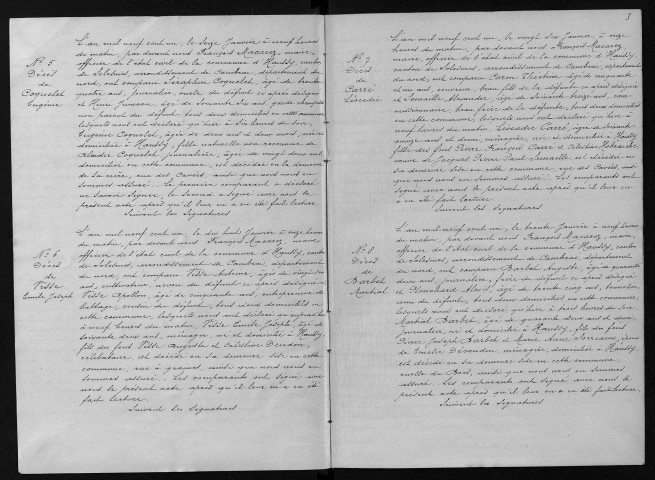 L'an mil neuf cent un, le seize Janvier à neuf heures
du matin, par devant nous François Macarez, maire,
officier de l'état civil de la commune d'Haussy, canton
de Solesmes, arrondissement de Cambrai, département du
nord, ont comparu Séraphin Coquelet, âgé de
quatre ans, journalier, oncle du défunt ci après désigné
et Henri ans, garde champêtre
non parent du défunt, tous deux domiciliés en cette commune
lesquels nous ont déclaré qu'hier à six heures du soir,
Eugénie Coquelet, âgée de deux ans et demi, née et
domiciliée à Haussy, fille naturelle non reconnue de
Coquelet, journalière, âgée de vingt deux ans,
domiciliée en cette commune, est décédée en la demeure
de sa mère, rue des , ainsi que nous nous en
sommes assuré. Le premier comparant a déclaré
ne savoir signer, le second a signé avec nous le
présent acte après qu'il leur en a été fait lecture
Suivent les Signatures
N° 5
Décès
de
Coquelet
Eugénie
L'an mil neuf cent un, le Janvier, à onze heures
du matin, par devant nous François Macarez, maire
officier de l'état civil de la commune d'Haussy, canton
de Solesmes, arrondissement de Cambrai, département
du nord, ont comparu Visse Antoine, âgé de vingt
ans, cultivateur, neveu du défunt ci après désigné et
Visse Apollon, âgé de cinquante ans, entrepreneur de
battage, cousin du défunt, tous deux domiciliés en
cette commune, lesquels nous ont déclaré qu'aujourd'hui
à neuf heures du matin Visse Emile Joseph, âgé de
soixante deux ans, ménager, né et domicilié à Haussy
fils des feus Visse Augustin et Célestine Dordoin,
célibataire, est décédé en sa demeure sise en cette
commune, rue , ainsi que nous nous en
sommes assuré. Les comparants ont signé avec
nous le présent acte après qu'il leur en a été
fait lecture.
Suivent les Signatures
N° 6
Décès
de
Visse
Emile Joseph
3
L'an mil neuf cent un, le vingt six Janvier, à onze
heures du matin, par devant nous François Macarez
maire officier de l'état civil de la commune d'Haussy,
canton de Solesmes, arrondissement de Cambrai, département
du nord, ont comparu Caron Théotime, âgé de cinquante
et un ans, , beau fils de la défunte ci après désignée
et Alexandre, âgé de soixante treize ans,
, beau frère de la défunte, tous deux domiciliés
en cette commune, lesquels nous ont déclaré qu'hier à
neuf heures du matin, Léocadie Carré, âgée de soixante
quinze ans et demi, ménagère, née et domiciliée à Haussy
fille des feus Pierre François Carré et Célestine ,
veuve de Jacques Pierre Paul , est décédée en
sa demeure sise en cette commune, rue des , ainsi
que nous nous en sommes assuré. Les comparants ont
signé avec nous le présent acte après qu'il leur en
a été fait lecture
Suivent les Signatures
N° 7
Décès
de
Carré
Léocadie
L'an mil neuf cent un, le trente Janvier, à onze heures
du matin, par devant nous François Macarez, maire,
officier de l'état civil de la commune d'Haussy, canton
de Solesmes, arrondissement de Cambrai, département
du nord, ont comparu Barbet Auguste, âgé de quarante
ans, journalier, frère du défunt ci après désigné
et , âgé de trente cinq ans, ,
du défunt, tous deux domiciliés en cette commune,
lesquels nous ont déclaré qu'hier, à heures du soir
Martial Barbet, âgé de quarante deux ans et demi,
journalier, né et domicilié à Haussy, fils de feu
Pierre Joseph Barbet et Marie Anne , époux
de , ménagère, domiciliée à Haussy,
est décédé en sa demeure sise en cette commune
ruelle du , ainsi que nous nous en sommes
assuré. Les comparants ont signé avec nous le
présent acte après qu'il leur en a été fait lecture.
Suivent les Signatures
N° 8
Décès
de
Barbet
Martial